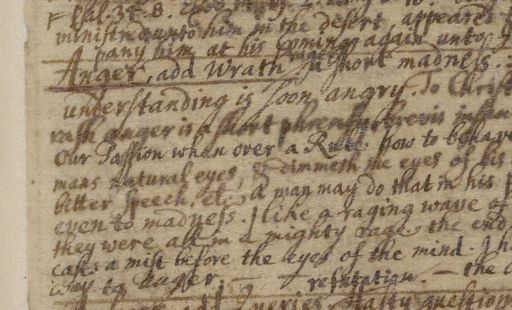 Psal. 34. 8.
ministred unto him in the desert, appeared
pany him at his Coming again unto
Anger, add Wrath a short madness.
understanding is soon angry. To Christ
rash anger is a short phrensy, brevis insan
Our Passion when over a Rule, how to behave
mans natural eyes, & dimmeth the eyes of his
bitter speech, etc. a man may do that in his
even to madness. like a raging wave of
they were all in a mighty rage, the end
cast a mist before the eyes of the mind.
to Anger. — refutation. — the
add Queries. Hasty question